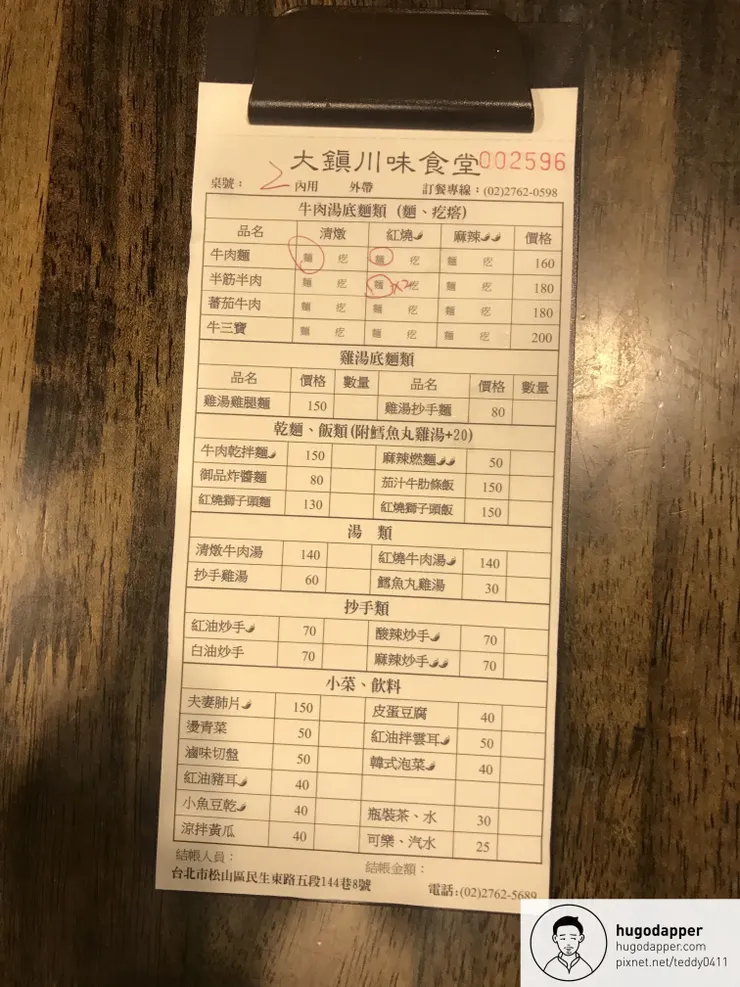 大鎮川味食堂 002596
桌號： 2 內用 外帶 訂餐專線：(02)2762-0598
牛肉湯底麵類 (麵、疙瘩)
品名 清燉 紅燒 麻辣 價格
牛肉麵 麵 疙 麵 疙 麵 疙 160
半筋半肉 麵 疙 麵 x2 疙 麵 疙 180
蕃茄牛肉 麵 疙 麵 疙 麵 疙 180
牛三寶 麵 疙 麵 疙 麵 疙 200
雞湯底麵類
品名 價格 數量 品名 價格 數量
雞湯雞腿麵 150 雞湯抄手麵 80
乾麵、飯類(附鱈魚丸雞湯+20)
牛肉乾拌麵 150 麻辣燃麵 50
御品炸醬麵 80 茄汁牛肋條飯 150
紅燒獅子頭麵 130 紅燒獅子頭飯 150
湯 類
清燉牛肉湯 140 紅燒牛肉湯 140
抄手雞湯 60 鱈魚丸雞湯 30
抄手類
紅油炒手 70 酸辣炒手 70
白油炒手 70 麻辣炒手 70
小菜、飲料
夫妻肺片 150 皮蛋豆腐 40
燙青菜 50 紅油拌雲耳 50
滷味切盤 50 韓式泡菜 40
紅油豬耳 40
小魚豆乾 40 瓶裝茶、水 30
涼拌黃瓜 40 可樂、汽水 25
結帳人員： 結帳金額：
台北市松山區民生東路五段144巷8號 電話:(02)2762-5689
hugodapper
hugodapper.com
pixnet.net/teddy0411